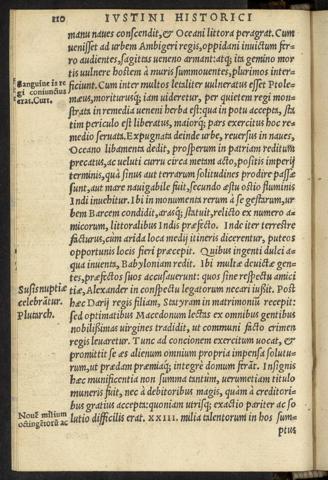 110 IVSTINI HISTORICI
manu naues conscendit, & Oceani littora peragrat. Cum
uenisset ad urbem Ambigeri regis, oppidani inuictum fer-
ro audientes, sagittas ueneno armant: atq; ita gemino mor
tis uulnere hostem à muris summouentes, plurimos inter-
Sanguine is re
ficiunt. Cum inter multos letaliter uulneratus esset Ptole-
gi coniunctus
mæus, moriturusq; iam uideretur, per quietem regi mon-
erat. Curt.
strata in remedia ueneni herba est: qua in potu accepta, sta
tim periculo est liberatus, maiorq; pars exercitus hoc re-
medio seruata. Expugnata deinde urbe, reuersus in naues,
Oceano libamenta dedit, prosperum in patriam reditum
precatus, ac ueluti curru circa metam acto, positis imperij
terminis, quà sinus aut terrarum solitudines prodire passæ
sunt, aut mare nauigabile fuit, secundo æstu ostio fluminis
Indi inuehitur. Ibi in monumenta rerum à se gestarum, ur
bem Barcem condidit, arasq; statuit, relicto ex numero a-
micorum, littoralibus Indis præfecto. Inde iter terrestre
facturus, cùm arida loca medij itineris dicerentur, puteos
opportunis locis fieri præcepit. Quibus ingenti dulci a-
qua inuenta, Babyloniam redit. Ibi multæ deuictæ gen-
tes, præfectos suos accusauerunt: quos sine respectu amici
Susis nuptiæ
tiæ, Alexander in conspectu legatorum necari iußit. Post
celebrātur.
hæc Darij regis filiam, Statyram in matrimoniū recepit:
Plutarch.
sed optimatibus Macedonum lectas ex omnibus gentibus
nobilißimas uirgines tradidit, ut communi facto crimen
regis leuaretur. Tunc ad concionem exercitum uocat, &
promittit se æs alienum omnium propria impensa solutu-
rum, ut prædam præmiaq; integra domum ferāt. Insignis
hæc munificentia non summa tantùm, uerumetiam titulo
muneris fuit, nec à debitoribus magis, quàm à creditori-
bus gratius accepta: quoniam utrisq; exactio pariter ac so
lutio difficilis erat. XXIII. milia talentorum in hos sum
octingētorū ac
ptus